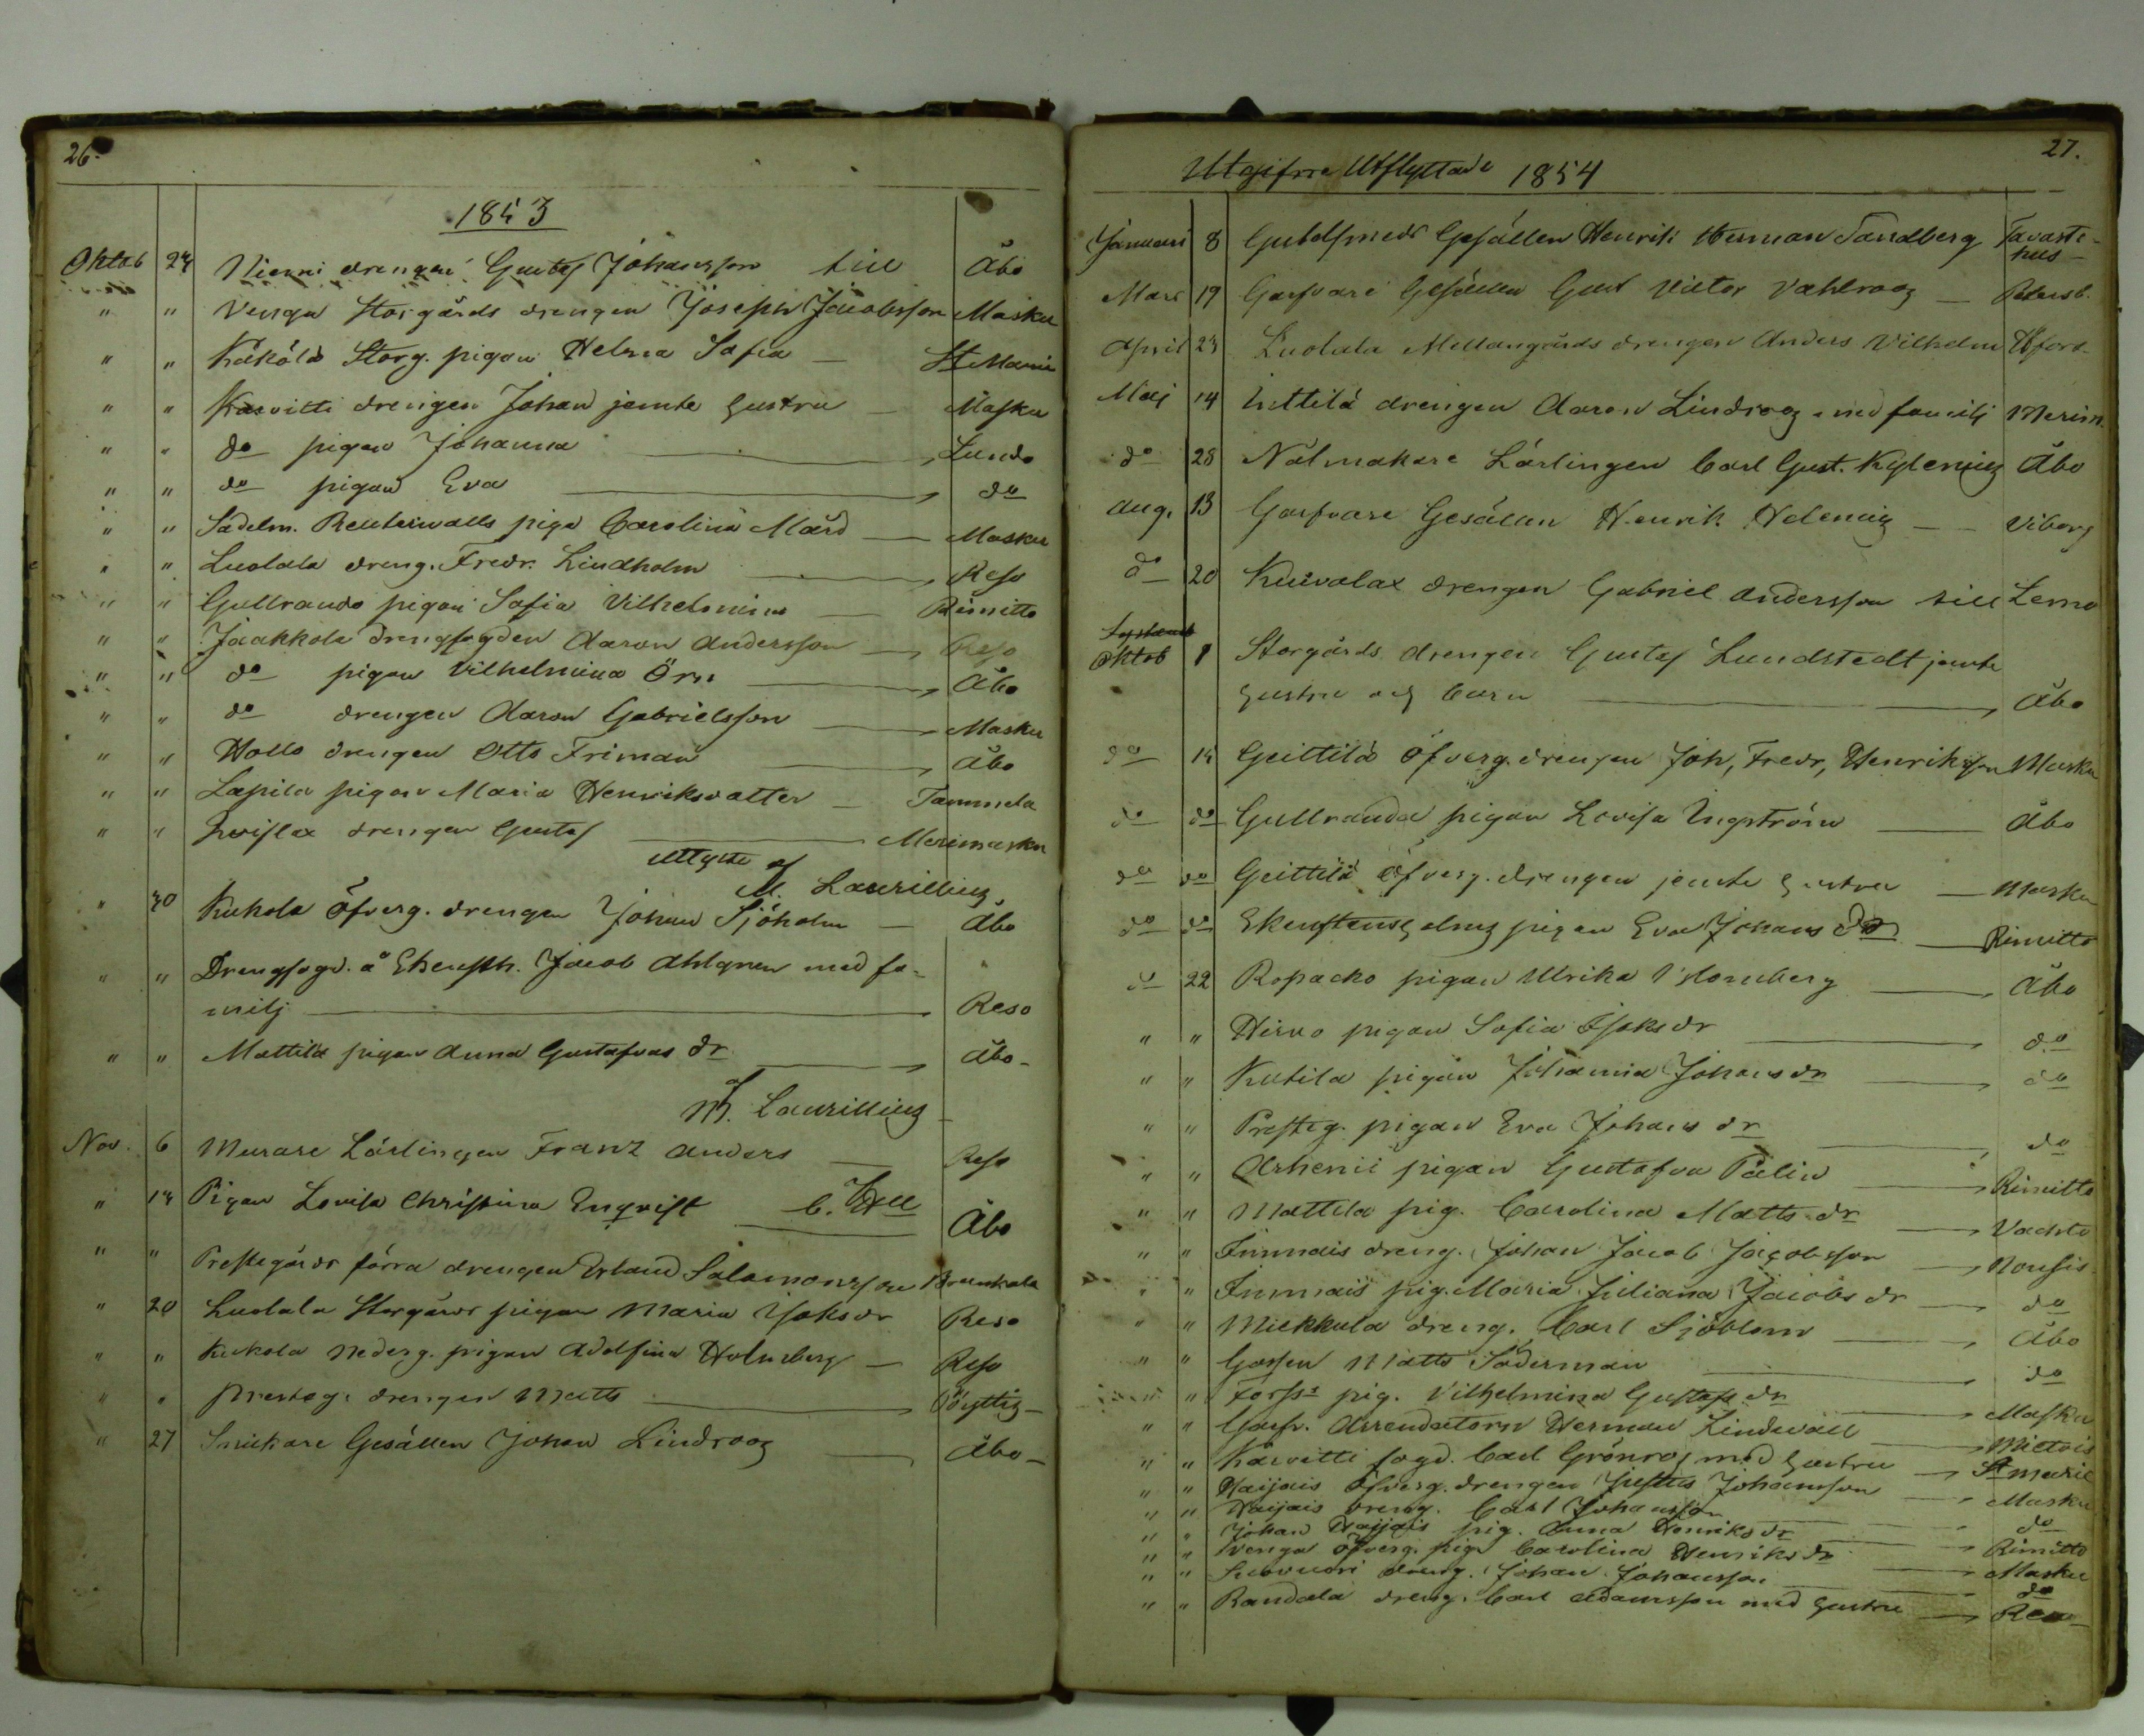 26.
1853
Oktob 24 Niemi drengen Gustaf Johansson till Åbo
" " Venga Storgårds drengen Joseph Jacobsson Masku
" " Kåkölä Storg. pigan Helena Sofia — St Marie
" " Karvitti drengen Johan jemte hustru — Masku
" " do pigan Johanna — Lundo
" " do pigan Eva — do
" " Sadelm. Reuterwalls piga Carolina Mård — Masku
" " Luolala dreng. Fredr. Lindholm — Reso
" " Gullranda pigan Sofia Vilhelmina — Rimitto
" " Jaakkola drengfogden Aaron Andersson — Reso
" " do pigan Vilhelmina Örn — Åbo
" " do drengen Aaron Gabrielsson — Masku
" " Wallo drengen Otto Friman — Åbo
" " Lapila pigan Maria Henriksdatter — Tammela
" " drengen Gustaf — Merimasku
af
M. Laurillius
" 30 Kukola Öfverg. drengen Johan Sjöholm — Åbo
" " Drengfogd. å Ekensth. Jacob Ahlgren med fa-
milj — Reso
" " Mattila pigan Anna Gustafvas dr — Åbo —
af
M. Laurillius
Nov. 6 Murare Lärlingen Franz Anders — Reso
" 14 Pigan Lovisa Christina Enqvist — Åbo
" " Prestegårds förra drengen Erland Salomonsson Brunkala
" 20 Luolala Storgårds pigan Maria Isaksdr Reso
" " Kukola Nederg. pigan Adolfina Holmberg — Reso
" " Presteg. drengen Matts — Pöyttis —
" 27 Snickare Gesällen Johan Lindroos — Åbo —
27.
Utgifne Utflyttade 1854
Januari 8 Guldsmeds Gesällen Henrik Herman Sandberg Tavaste-
hus —
Mars 19 Garfvare Gesällen Gust Victor Vahlroos — Petersb.
April 23 Luolala Mellangårds drengen Anders Vilhelm H:fors
Maj 14 Inttilä drengen Aaron Lindroos med familj Merim.
do 28 Nålmakare Lärlingen Carl Gust. Kylenius Åbo
Aug. 13 Garfvare Gesällen Henrik Helenius — Viborg
do 20 Kuivalax drengen Gabriel Andersson till Lemo
Oktob 8 Storgårds drengen Gustaf Lundstedt jemte
hustru och barn — Åbo
do 15 Geittilä Öfverg. drengen Joh. Fredr. Henriksson Masku
do do Gullranda pigan Lovisa Engström — Åbo
do do Geittilä Öfverg. drengen jemte hustru — Masku
do do Ekenstensholms pigan Eva Johans dr — Rimitto
do 22 Ropacko pigan Ulrika Holmberg — Åbo
" " Hirvo pigan Sofia Isaks dr — do
" " Kutila pigan Johanna Johans dr — do
" " Presteg. pigan Eva Johans dr — do
" " Arhenii pigan Gustafva Palin — Rimitto
" " Mattila pig. Carolina Matts dr — Vachto
" " Immais dreng. Johan Jacob Jacobsson — Nousis
" " Immais pig. Maria Juliana Jacobs dr — do
" " Miekkula dreng. Carl Sjöblom — Åbo
" " Gossen Matts Söderman — do
" " Forss: pig. Vilhelmina Gustafs dr — Masku
" " Garfv. Arrendatorn Herman Lindwall — Mietois
" " Karvitti fogd. Carl Grönros med hustru — St Marie
" " Haijais Öfverg. drengen Justus Johansson — Masku
" " Haijais dreng. Carl Johansson — do
" " Johan Haijais pig. Anna Henriks dr — Rimitto
" " Venga Öfverg. pig. Carolina Henriks dr — Masku
" " Suovuori dreng. Johan Johansson — do
" " Randala dreng. Carl Adamsson med hustru — Reso —